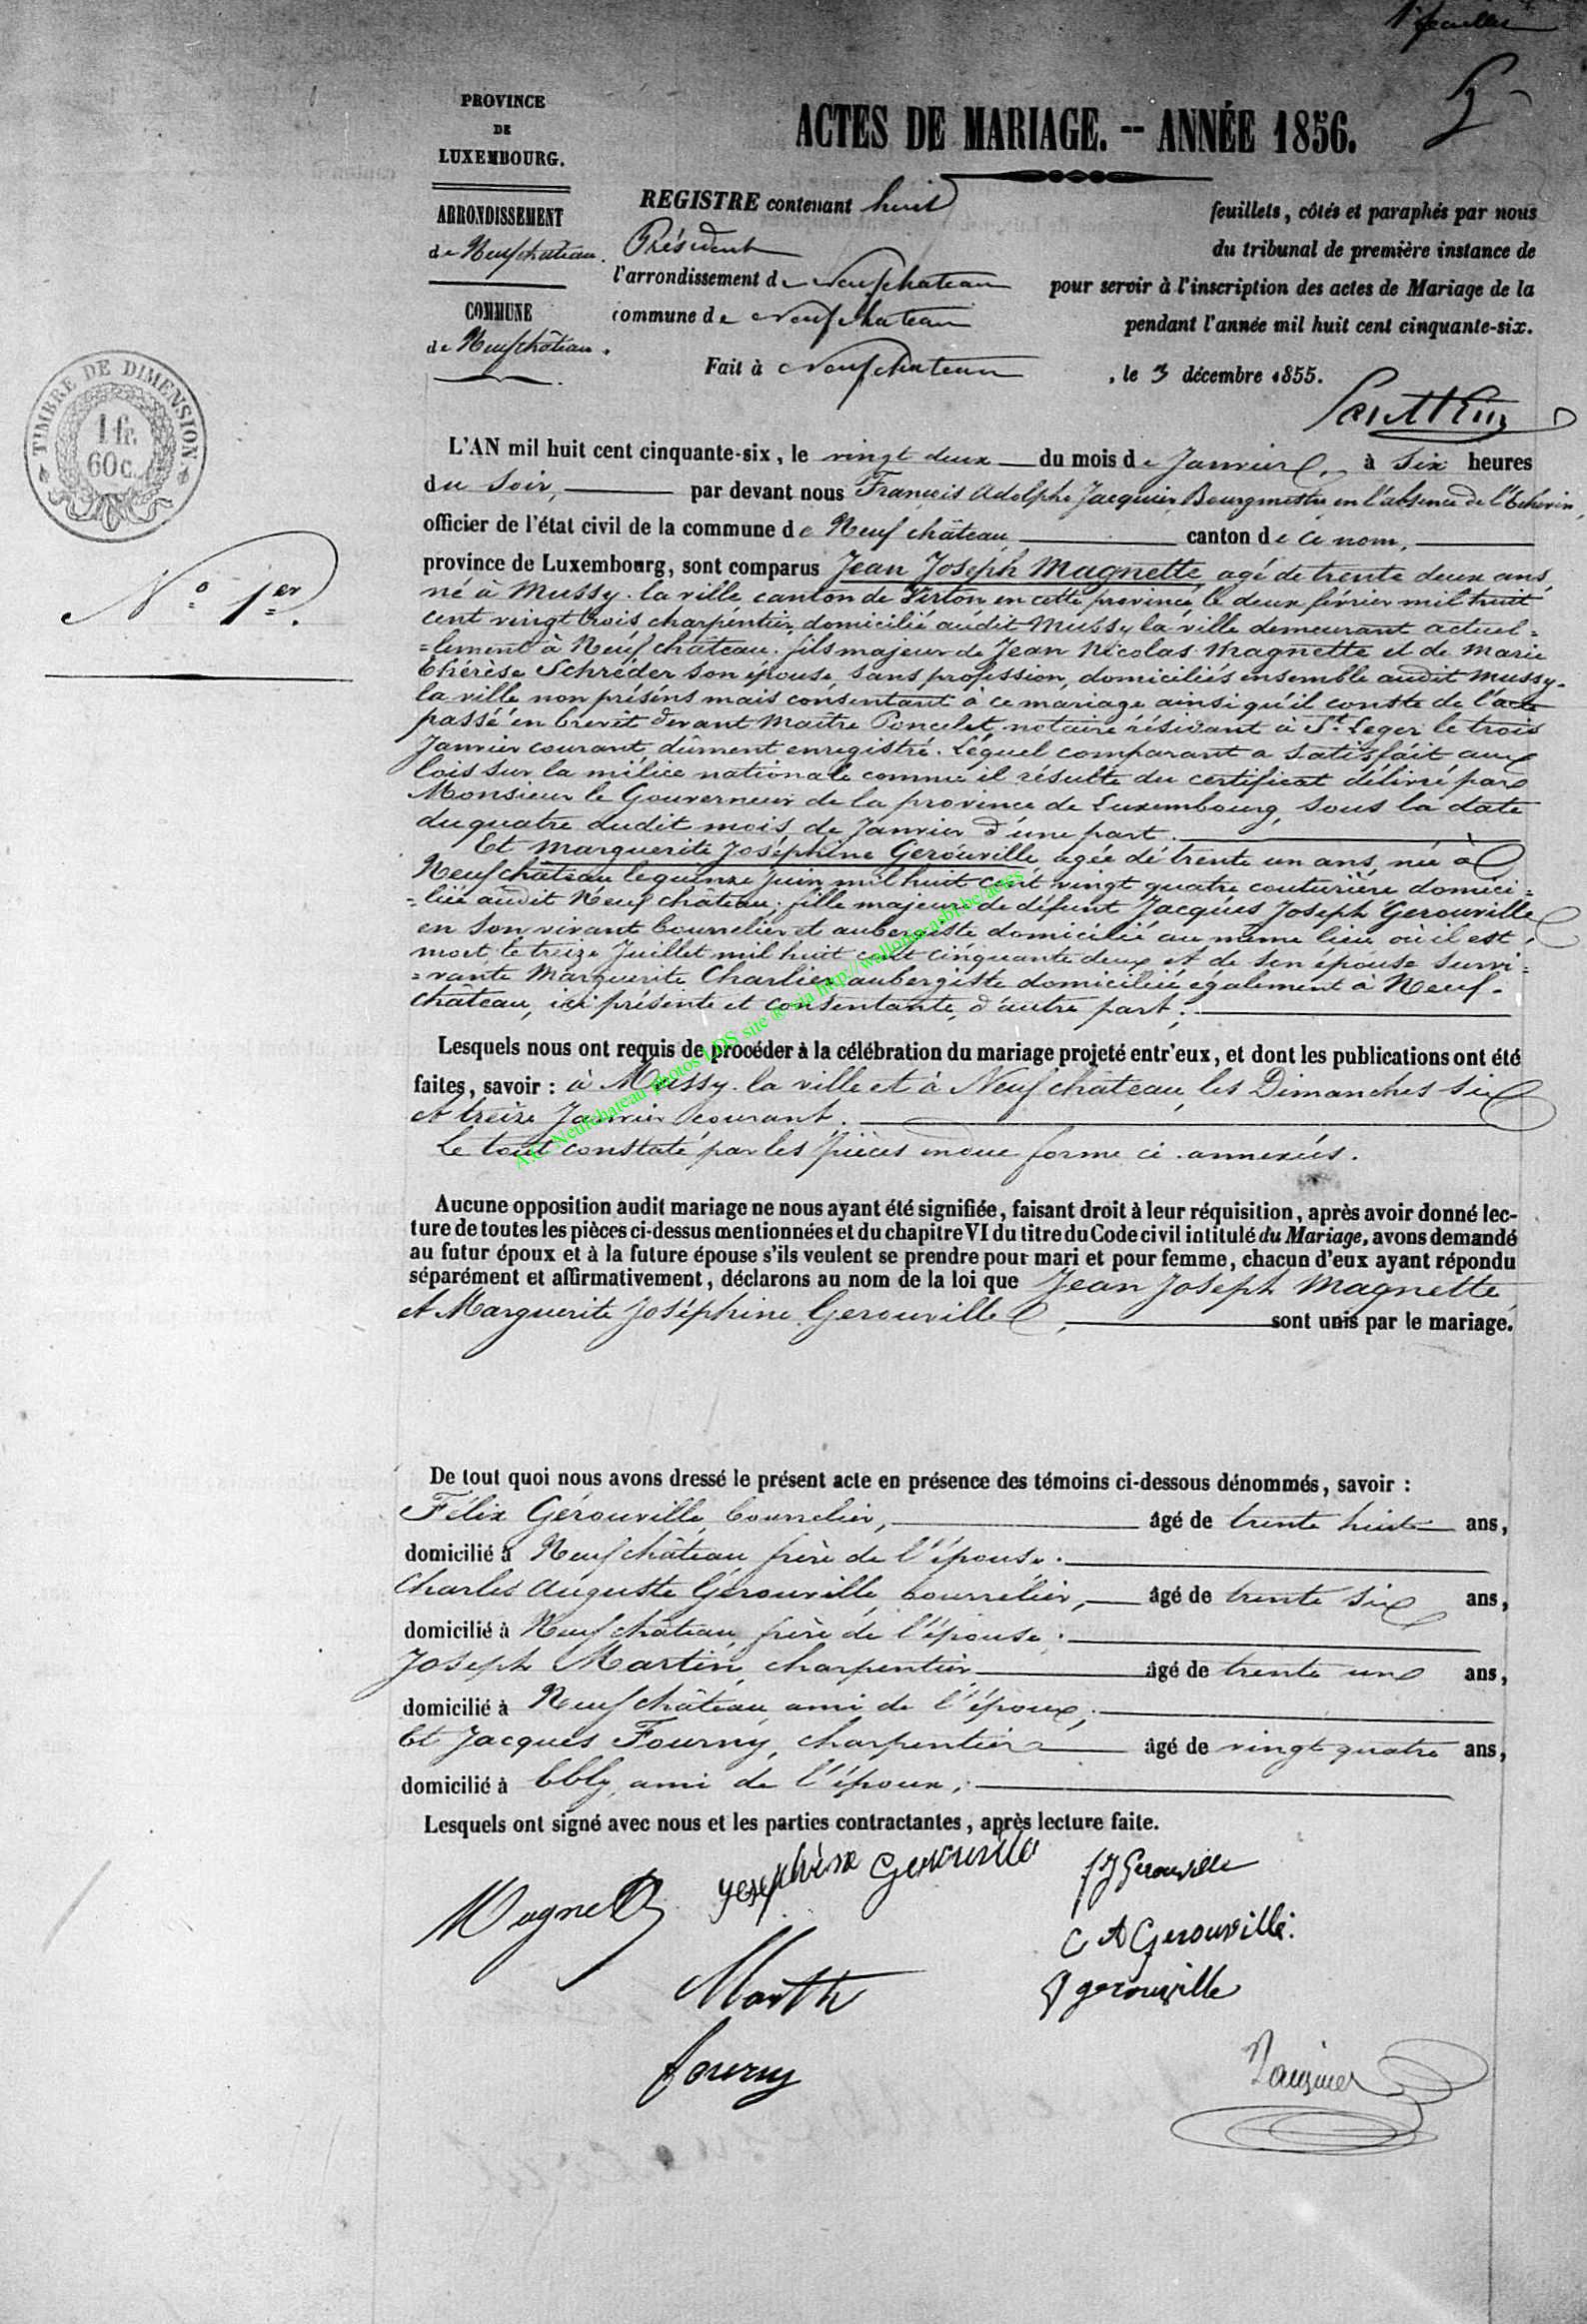 1er feuillet
PROVINCE
DE
LUXEMBOURG.
ARRONDISSEMENT
de Neufchateau.
COMMUNE
de Neufchâteau.
ACTES DE MARIAGE. -- ANNÉE 1856.
REGISTRE contenant huit feuillets, côtés et paraphés par nous
Président du tribunal de première instance de
l'arrondissement de Neufchateau pour servir à l'inscription des actes de Mariage de la
commune de Neufchateau pendant l'année mil huit cent cinquante-six.
Fait à Neufchateau, le 3 décembre 1855.
TIMBRE DE DIMENSION
1 fr.
60 c.
N° 1er.
L'AN mil huit cent cinquante-six, le vingt deux du mois de Janvier, à six heures
du soir, par devant nous François Adolphe Jacquier, Bourgmestre en l'absence de l'Echevin,
officier de l'état civil de la commune de Neufchâteau, canton de ce nom,
province de Luxembourg, sont comparus Jean Joseph Magnette, agé de trente deux ans,
né à Mussy-la ville, canton de Virton en cette province, le deux février mil huit
cent vingt trois charpentier, domicilié audit Mussy la ville demeurant actuel=
=lement à Neufchâteau. fils majeur de Jean Nicolas Magnette et de Marie
Thérèse Schréder son épouse, sans profession, domiciliés ensemble audit Mussy-
la ville non présens mais consentant à ce mariage ainsi qu'il conste de l'acte
passé en brevet devant Maître Poncelet, notaire résidant à St. Leger le trois
Janvier courant, dûment enregistré. Lequel comparant a satisfait aux
lois sur la milice nationale comme il résulte du certificat délivré par
Monsieur le Gouverneur de la province de Luxembourg, sous la date
du quatre dudit mois de Janvier d'une part.
Et Marguerite Joséphine Gerouville, agée de trente un ans, née à
Neufchâteau le quinze Juin mil huit cent vingt quatre couturière domici=
=liée audit Neufchâteau. fille majeure de défunt Jacques Joseph Gerouville
en son vivant bourrelier et aubergiste domicilié au même lieu où il est
mort le treize Juillet mil huit cent cinquante deux et de son épouse survi=
=vante Marguerite Charlier aubergiste domiciliée également à Neuf-
château, ici présente et consentante, d'autre part;
Lesquels nous ont requis de procéder à la célébration du mariage projeté entr'eux, et dont les publications ont été
faites, savoir : à Mussy-la ville et à Neufchâteau, les Dimanches six
et treize Janvier courant.
Le tout constaté par les pièces en due forme ci-annexées.
Aucune opposition audit mariage ne nous ayant été signifiée, faisant droit à leur réquisition, après avoir donné lec-
ture de toutes les pièces ci-dessus mentionnées et du chapitre VI du titre du Code civil intitulé du Mariage, avons demandé
au futur époux et à la future épouse s'ils veulent se prendre pour mari et pour femme, chacun d'eux ayant répondu
séparément et affirmativement, déclarons au nom de la loi que Jean Joseph Magnette
et Marguerite Joséphine Gerouville, sont unis par le mariage.
De tout quoi nous avons dressé le présent acte en présence des témoins ci-dessous dénommés, savoir :
Félix Gérouville, bourrelier, âgé de trente huit ans,
domicilié à Neufchâteau, frère de l'épouse.
Charles Auguste Gérouville, bourrelier, âgé de trente six ans,
domicilié à Neufchâteau, frère de l'épouse.
Joseph Martin, charpentier âgé de trente un ans,
domicilié à Neufchâteau, ami de l'époux,
Et Jacques Fourny, charpentier âgé de vingt quatre ans,
domicilié à Ebly, ami de l'époux,
Lesquels ont signé avec nous et les parties contractantes, après lecture faite.
Magnette
Josephine Gerouville
f J Gerouville
C A Gerouville.
gerouville
Martin
fourny
Jacquier
A.C. Neufchateau photos LDS site ® via http://wallonia-asbl.be/actes